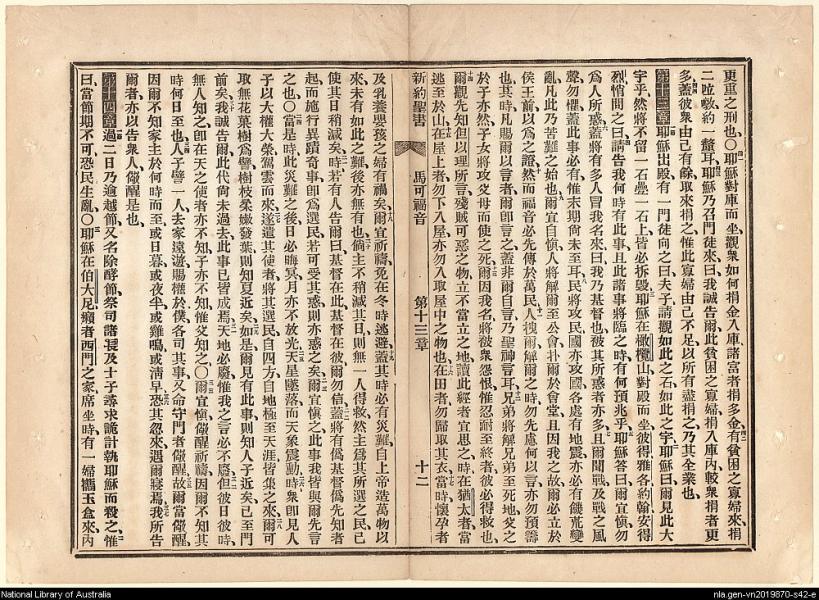 更重之刑也〇耶穌對庫而坐觀衆如何捐金入庫諸富者捐多金有貧困之寡婦來捐
二呫噉約一釐耳耶穌乃召門徒來曰我誠吿爾此貧困之寡婦捐入庫內較衆捐者更
多蓋彼衆由己有餘取來捐之惟此寡婦由己不足以所有盡捐之乃其全業也
第十三章耶穌出殿有一門徒向之曰夫子請觀如此之石如此之宇耶穌曰爾見此大
宇乎然將不留一石疊一石上皆必拆毀耶穌在橄欖山對殿而坐彼得雅各約翰安得
烈悄問之曰請吿我何時有此事且此諸事將臨之時有何預兆乎耶穌答曰爾宜愼勿
爲人所惑蓋將有多人冒我名來曰我乃基督也致其所惑者亦多且爾聞戰及戰之風
聲勿懼蓋此事必有惟末期尚未至耳民將攻民國亦攻國各處有地震亦必有饑荒變
亂凡此乃苦難之始也爾宜自愼人將解爾至公會扑爾於會堂且因我之故爾必立於
侯王前以爲之證然而福音必先傳於萬民人拽爾解爾之時勿先慮何以言亦勿預籌
也其時凡賜爾以言者爾卽言之蓋非爾自言乃聖神言耳兄弟將解兄弟至死地父之
於子亦然子女將攻父母而使之死爾因我名將被衆怨恨惟忍耐至終者彼必得救也
爾觀先知但以理所言殘賊可惡之物立不當立之地讀此經者宜思之時在猶太者當
逃至於山在屋上者勿下入屋亦勿入取屋中之物也在田者勿歸取其衣當時懷孕者
新約聖書 馬可福音 第十三章 十二
及乳養嬰孩之婦有禍矣爾宜祈禱免在冬時逃避蓋其時必有災難自上帝造萬物以
來未有如此之難後亦無有也倘主不稍減其日則無一人得救然主爲其所選之民已
使其日稍減矣時若有人吿爾曰基督在此基督在彼爾勿信蓋將有僞基督僞先知者
起而施行異蹟奇事卽爲選民若可受其惑則亦惑之矣爾宜愼之此事我皆與爾先言
之也〇當是時此災難之後日必晦冥月亦不放光天星墜落而天象震動時衆卽見人
子以大權大榮駕雲而來遂遣其使者將其選民自四方自地極至天涯皆集之來爾可
取無花菓樹爲譬樹枝柔嫩發葉則知夏近矣如是爾見有此事則知人子近矣已至門
前矣我誠吿爾此代尚未過去此事已皆成焉天地必廢惟我之言必不廢但彼日彼時
無人知之卽在天之使者亦不知子亦不知惟父知之〇爾宜愼儆醒祈禱因爾不知其
時何日至也人子譬一人去家遠遊賜權於僕各司其事又命守門者儆醒故爾當儆醒
因爾不知家主於何時而至或日暮或夜半或雞鳴或淸早恐其忽來遇爾寢焉我所吿
爾者亦以吿衆人儆醒是也
第十四章過二日乃逾越節又名除酵節祭司諸長及士子尋求詭計執耶穌而殺之惟
曰當節期不可恐民生亂〇耶穌在伯大尼癩者西門之家席坐時有一婦攜玉盒來內
National Library of Australia
nla.gen-vn2019870-s42-e